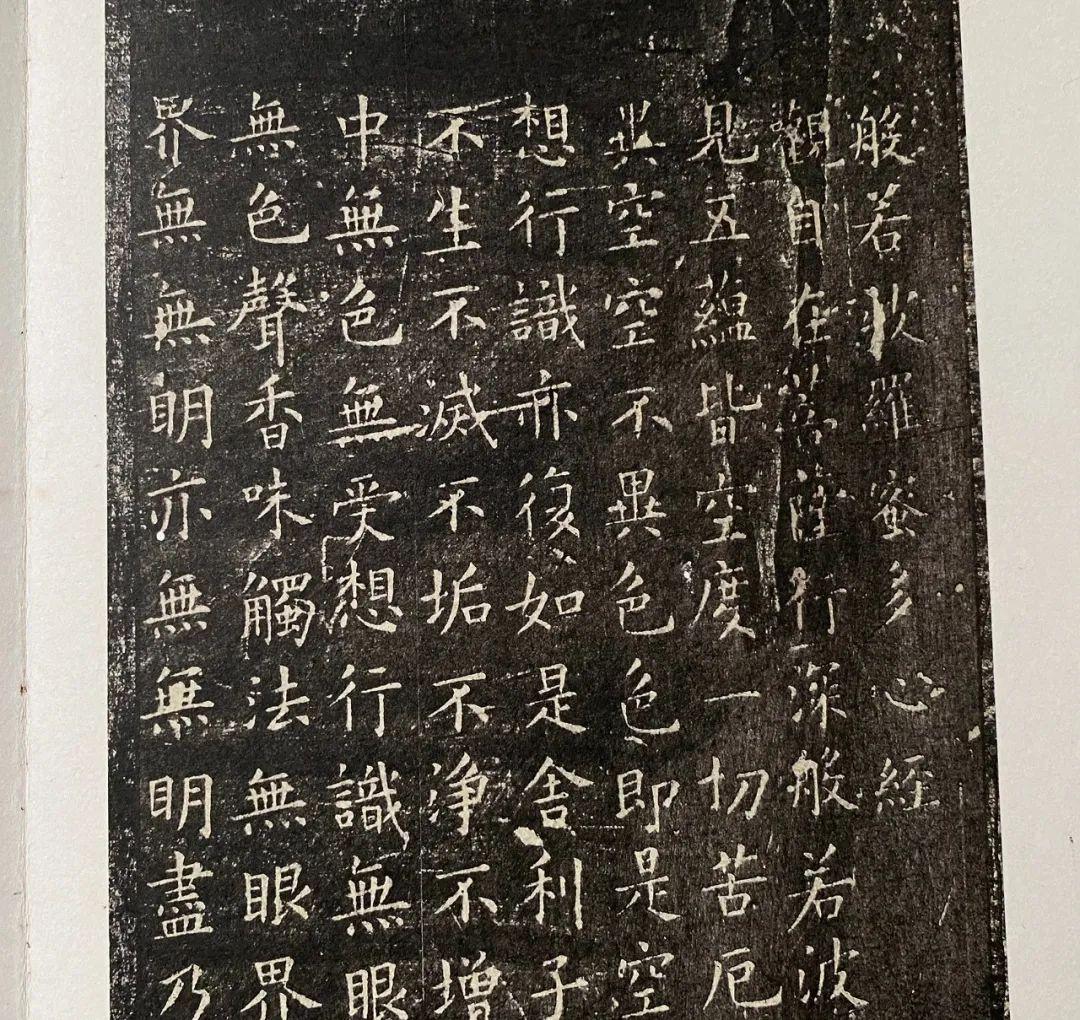 般若波羅蜜多心經
觀自在菩薩行深般若波
見五蘊皆空度一切苦厄
異空空不異色色即是空
想行識亦復如是舍利子
不生不滅不垢不淨不增
中無色無受想行識無眼
無色聲香味觸法無眼界
界無無明亦無無明盡乃